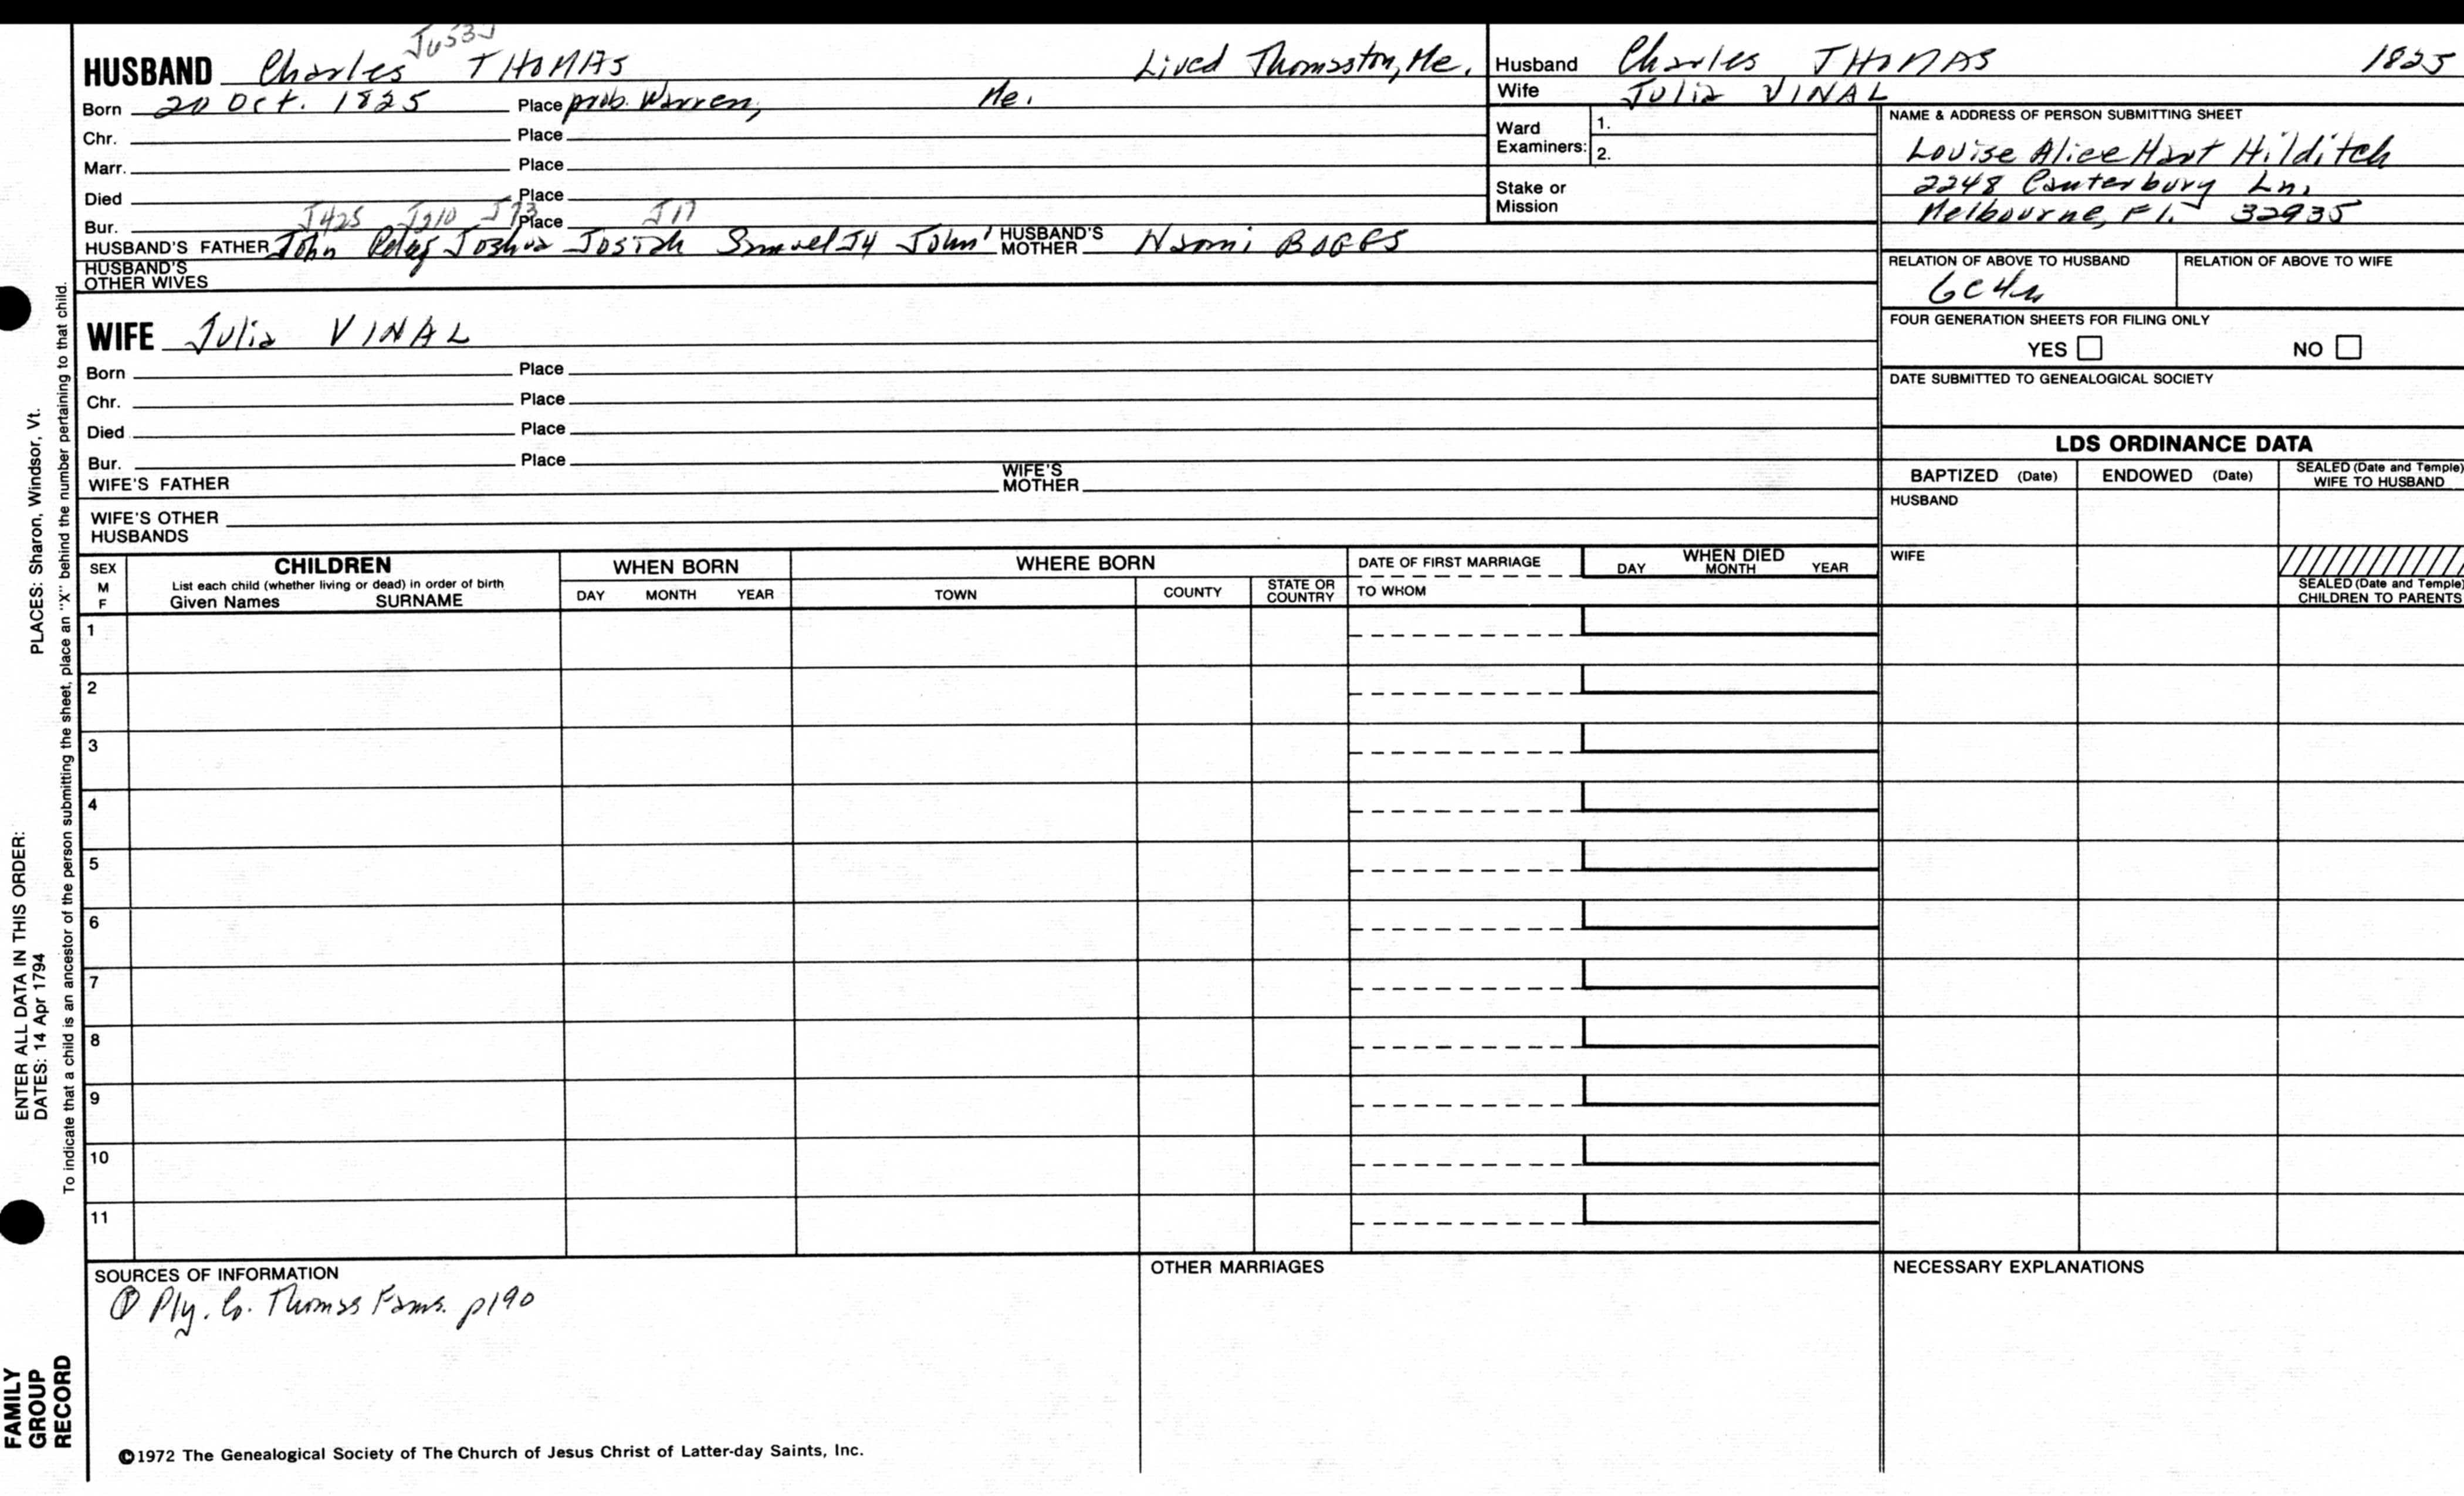 HUSBAND Charles THOMAS Lived Thomaston, Me.
Born 20 Oct. 1825 Place prob. Warren, Me.
Chr. Place
Marr. Place
Died Place
Bur. Place
J425 J210 J73 J17
HUSBAND'S FATHER John Peleg Joshua Josiah Samuel J4 John' HUSBAND'S MOTHER Naomi BAGGS
HUSBAND'S
OTHER WIVES
WIFE Julia VINAL
Born Place
Chr. Place
Died Place
Bur. Place
WIFE'S FATHER WIFE'S MOTHER
WIFE'S OTHER
HUSBANDS
Husband Charles THOMAS 1825
Wife Julia VINAL
Ward
Examiners:
1.
2.
Stake or
Mission
NAME & ADDRESS OF PERSON SUBMITTING SHEET
Louise Alice Hart Hilditch
2248 Canterbury Ln,
Melbourne, Fl. 32935
RELATION OF ABOVE TO HUSBAND RELATION OF ABOVE TO WIFE
6C4R
FOUR GENERATION SHEETS FOR FILING ONLY
YES NO
DATE SUBMITTED TO GENEALOGICAL SOCIETY
LDS ORDINANCE DATA
BAPTIZED (Date) ENDOWED (Date) SEALED (Date and Temple)
WIFE TO HUSBAND
HUSBAND
WIFE
SEALED (Date and Temple)
CHILDREN TO PARENTS
SEX
M
F
CHILDREN
List each child (whether living or dead) in order of birth
Given Names SURNAME
WHEN BORN
DAY MONTH YEAR
WHERE BORN
TOWN COUNTY STATE OR
COUNTRY
DATE OF FIRST MARRIAGE
TO WHOM
WHEN DIED
DAY MONTH YEAR
1
2
3
4
5
6
7
8
9
10
11
SOURCES OF INFORMATION
① Ply. Co. Thomas Fams. p190
OTHER MARRIAGES
NECESSARY EXPLANATIONS
©1972 The Genealogical Society of The Church of Jesus Christ of Latter-day Saints, Inc.
ENTER ALL DATA IN THIS ORDER:
DATES: 14 Apr 1794
PLACES: Sharon, Windsor, Vt.
To indicate that a child is an ancestor of the person submitting the sheet, place an "X" behind the number pertaining to that child.
FAMILY
GROUP
RECORD